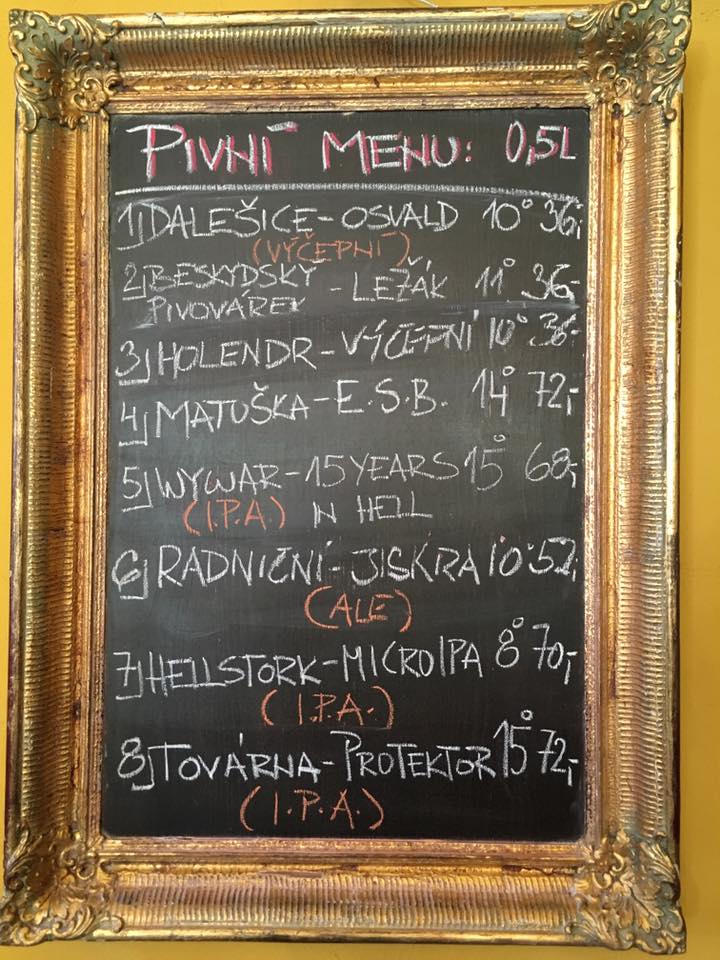 PIVNÍ MENU: 0,5L
1) DALEŠICE - OSVALD 10° 36,-
(VÝČEPNÍ)
2) BESKYDSKÝ - LEŽÁK 11° 36,-
PIVOVÁREK
3) HOLENDR - VÝČEPNÍ 10° 36,-
4) MATUŠKA - E.S.B. 14° 72,-
5) WYWAR - 15 YEARS 15° 68,-
(I.P.A.) IN HELL
6) RADNIČNÍ - JISKRA 10° 52,-
(ALE)
7) HELLSTORK - MICROIPA 8° 70,-
(I.P.A.)
8) TOVÁRNA - PROTEKTOR 15° 72,-
(I.P.A.)